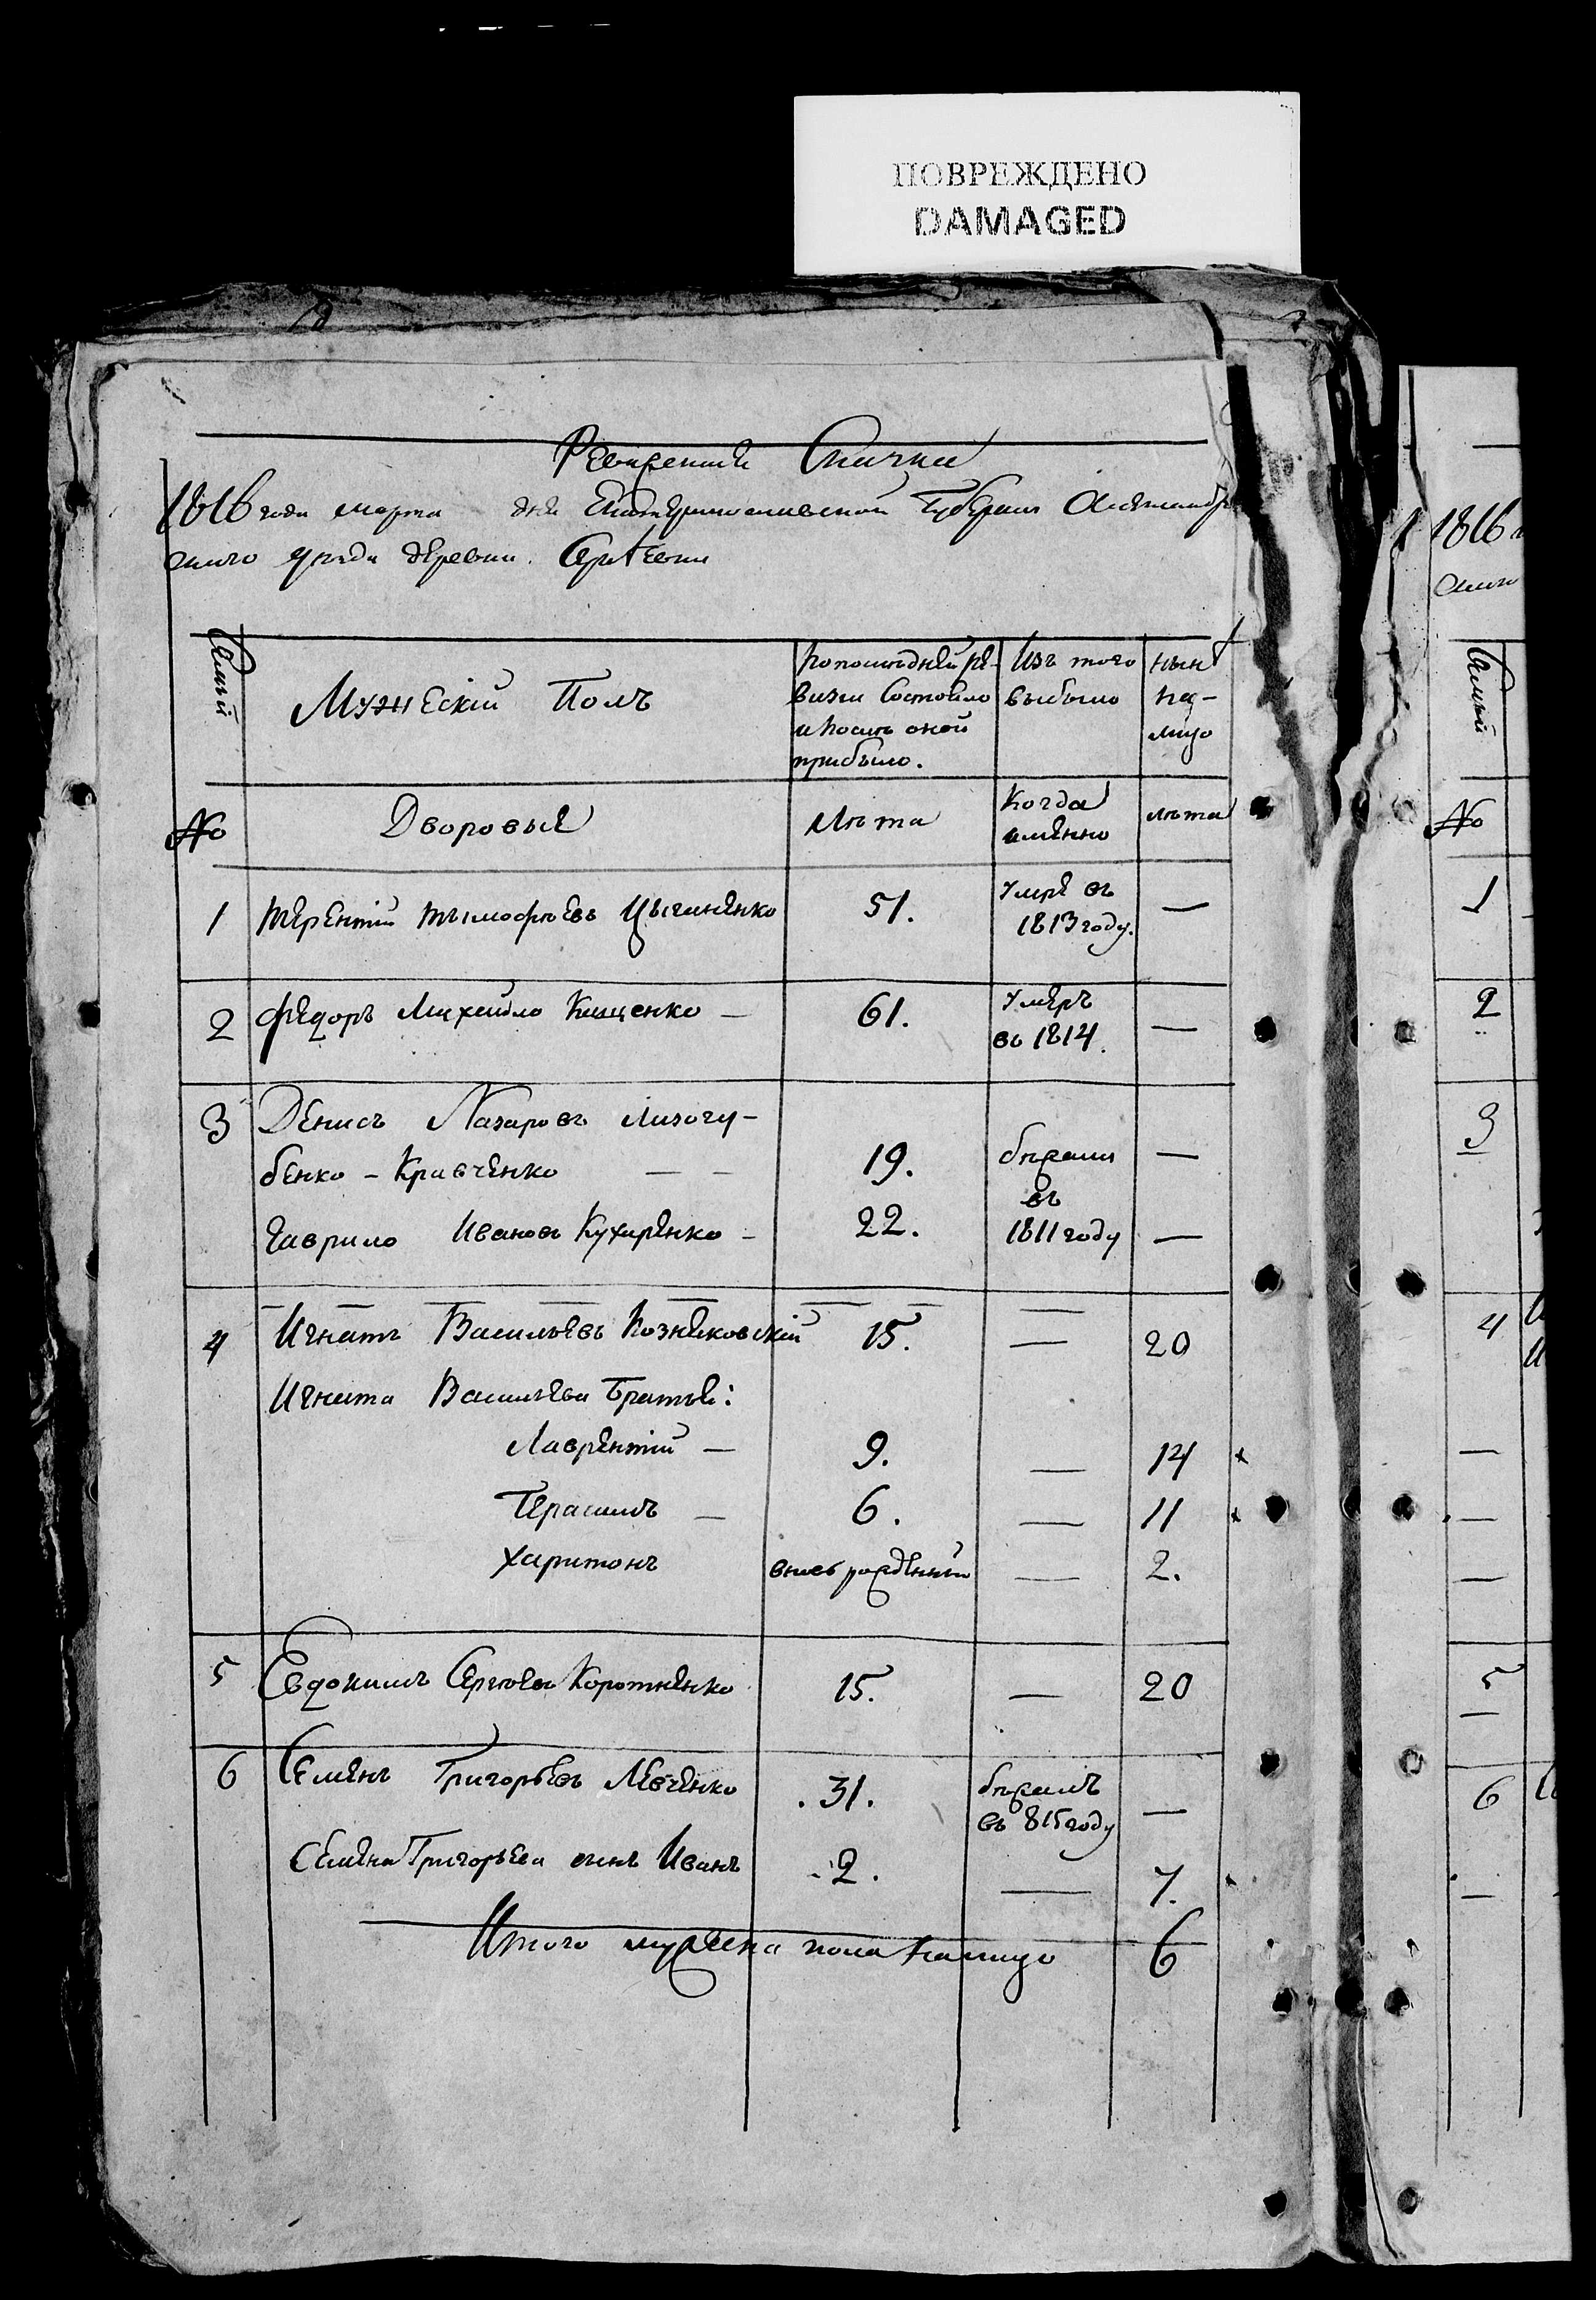 ПОВРЕЖДЕНО
DAMAGED
Ревизская Сказка
1816 года марта дня Екатеринославской Губернии Александров
скаго уезда деревни. Сергеевки
Семьи
Мужескій Полъ
По последней ре-
визіи Состояло
и После оной
прибыло.
Изъ того
выбыло
ныне
на-
лицо
№
Дворовые
Лѣта
Когда
именно
лѣта
1 терентій тымофѣевъ Цыганенко 51. Умре въ —
1813 году.
2 федоръ Михайло Кищенко — 61. Умеръ —
въ 1814.
3 Денисъ Назаровъ Лизогу-
бенко – Кравченко — — 19. бѣжали —
въ
Гаврило Ивановъ Кухаренко – 22. 1811 году —
4 Игнатъ Васильевъ 15. — 20
Игната Васильева братья:
Лаврентій — 9. — 14 х
Герасимъ — 6. — 11 х
Харитонъ вновь рожденный — 2.
5 Евдокимъ Сергѣевъ Коротненко 15. — 20
6 Семенъ Григорьевъ Левченко 31. бѣжалъ —
въ 815 году
Семена Григорьева сынъ Иванъ 2. — 7.
Итого мужеска пола налицо 6
1816
скаго
Семьи
№
1
2
3
4
5
6